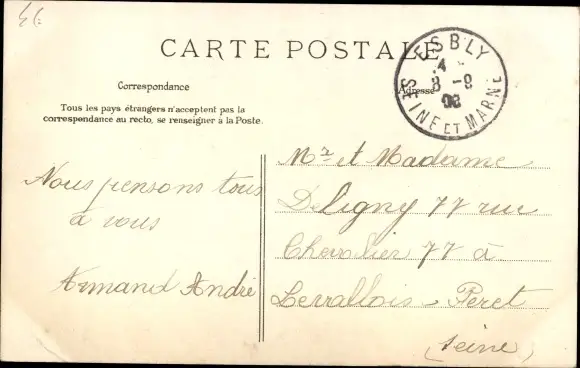 CARTE POSTALE
ESBLY
8 -9
08
SEINE ET MARNE
Correspondance
Adresse
Tous les pays étrangers n'acceptent pas la
correspondance au recto, se renseigner à la Poste.
Nous pensons tous
à vous
Armand André
Mr et Madame
Deligny 77 rue
Chevalier 77 à
Levallois-Peret
(Seine)